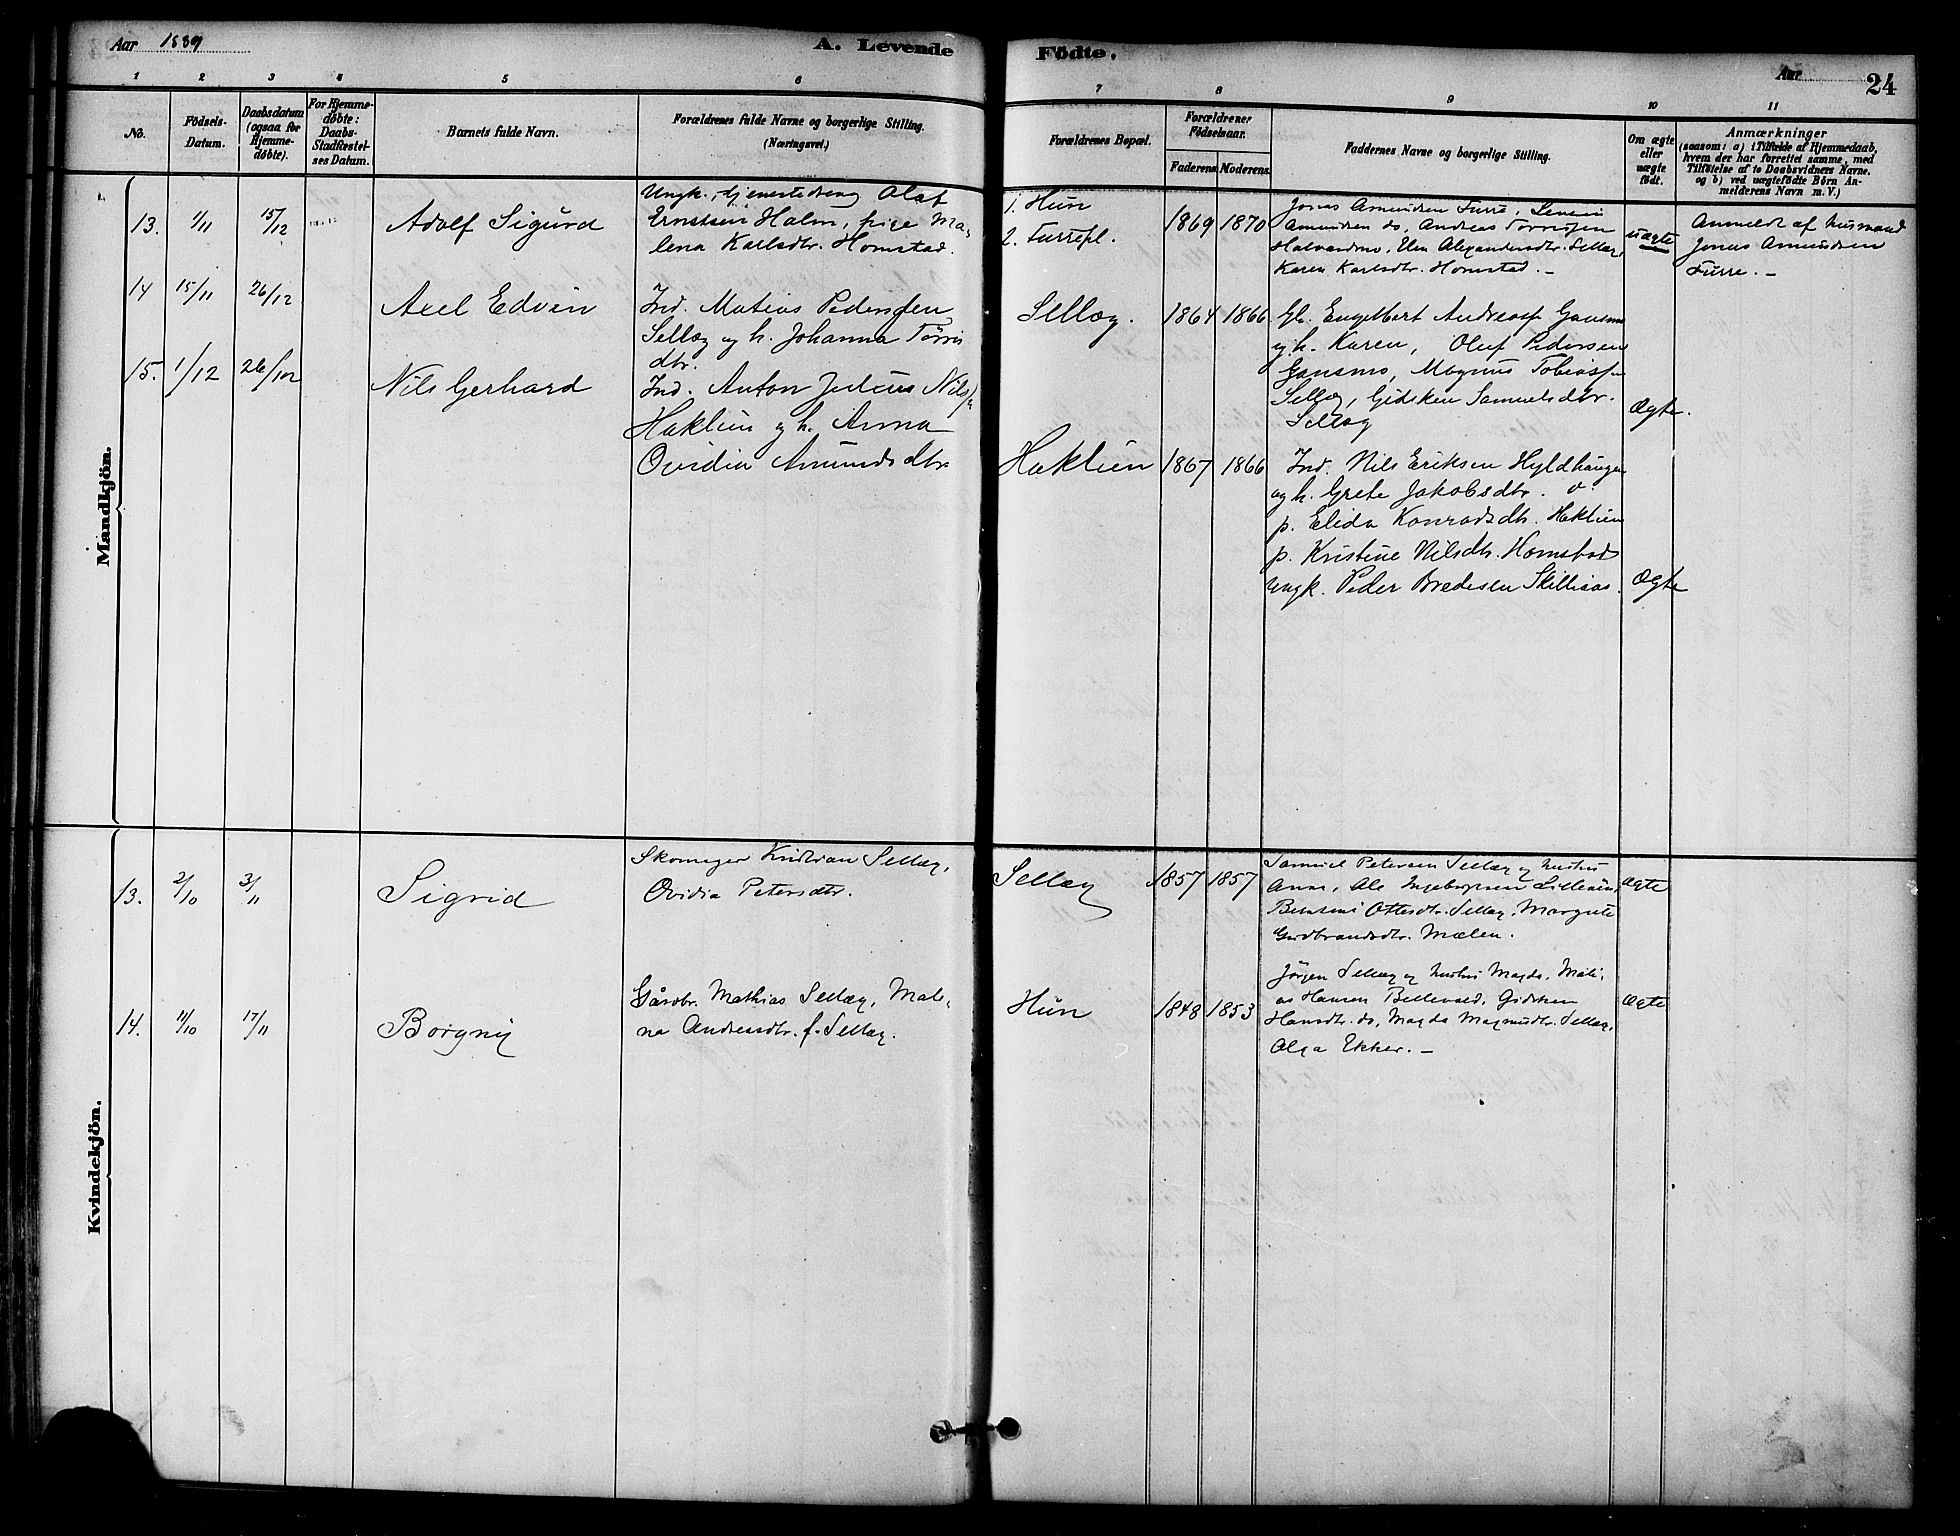 Aar 1889
A. Levende Födte.
Aar
24
1 2 3 4 5 6 7 8 9 10 11
No.
Födsels-Datum.
Daabsdatum (ogsaa for Hjemme-döbte).
For Hjemme-döbte: Daabs-Stadfæstel-ses Datum.
Barnets fulde Navn.
Forældrenes fulde Navne og borgerlige Stilling. (Næringsvei.)
Forældrenes Bopæl.
Forældrenes Födselsaar.
Faderens. Moderens.
Faddernes Navne og borgerlige Stilling.
Om ægte eller uægte födt.
Anmærkninger
(saasom: a) i Tilfælde af Hjemmedaab, hvem der har forrettet samme, med Tilföielse af to Daabsvidners Navne. og b) ved uægtefödte Börn An-melderens Navn m. V.)
Mandkjön.
13. 1/11 15/12 Adolf Sigurd
Ungk., tjenestedreng Olaf
Ernstsen Holm, pige Ma-
lena Karlsdtr. Homstad.
1. Hun
2. Furrepl.
1869 1870
Jonas Amundsen Furre,
Amundsen do, Andreas
Halvardmo, Elen Alexandersdtr. Sellæg,
Karen Karlsdtr. Homstad. —
uægte
Anmeldt af husmand
Jonas Amundsen
Furre. —
14 15/11 26/12 Axel Edvin
Ind. Matias Pedersen
Sellæg og h. Johanna Tørris
dtr.
Sellæg. 1864 1866
Gb. Engelbert Andreass. Gansmo
og h. Karen, Oluf Pedersen
Gansmo, Magnus Tobiass.
Sellæg, Gidsken Samuelsdtr.
Sellæg
Ægte.
15. 1/12 26/12 Nils Gerhard
Ind. Anton Julius Nils
Haklien og h. Anna
Ovidia Amundsdtr
Haklien 1867 1866
Ind. Nils Eriksen Hyldhaugen
og h. Grete Jakobsdtr.
p. Elida Konradsdtr. Haklien
p. Kristine Nilsdtr. Homstad
Ungk. Peder Bredesen Skilliaas.
Ægte
Kvindekjön.
13. 2/10 3/11 Sigrid
Skomager Kristian Sellæg,
Ovidia Petersdtr.
Sellæg 1857 1857
Samuel Petersen Sellæg og hustru
Anna, Ole Ingebrigtsen Lillevien,
Ottesdtr. Sellæg, Margrete
Gudbrandsdtr. Mælen.
Ægte
14. 11/10 17/11 Borgny
Gårdbr. Mathias Sellæg, Male-
na Andreasdtr. f. Sellæg.
Hun 1848 1853
Jörgen Sellæg og hustru Magda, Mati-
as Hansen Gidsken
Hansdtr. do, Magda Magnusdtr. Sellæg,
Olga Ekker. —
Ægte